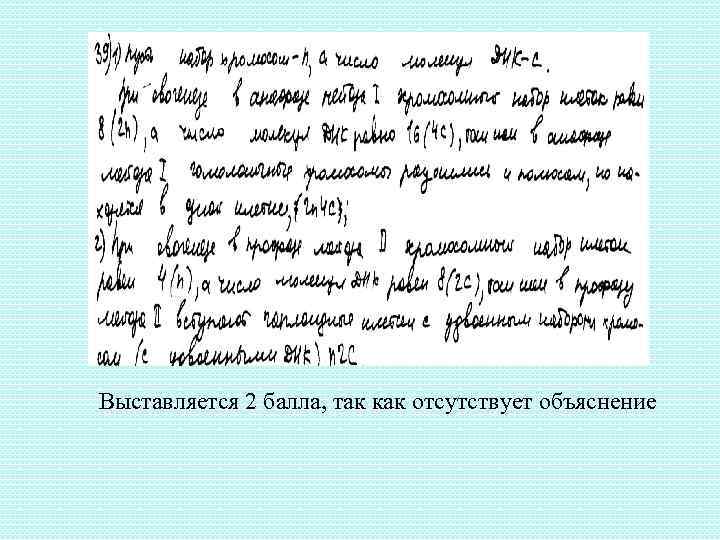 39) 1) Пусть набор хромосом - n, а число молекул ДНК - c.
При овогенезе в анафазе мейоза I хромосомный набор клеток равен
8 (2n), а число молекул ДНК равно 16 (4c), так как в анафазе
мейоза I гомологичные хромосомы разошлись к полюсам, но на-
ходятся в одной клетке, {2n4c};
2) При овогенезе в профазе мейоза II хромосомный набор клеток
равен 4 (n), а число молекул ДНК равен 8 (2c), так как в профазу
мейоза II вступают гаплоидные клетки с удвоенным набором хромо-
сом (с удвоенными ДНК) n2c
Выставляется 2 балла, так как отсутствует объяснение